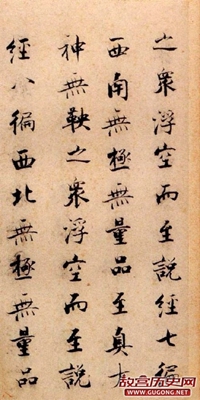 之眾浮空而至說經七徧
西南無極無量品至真大
神無鞅之眾浮空而至說
經八徧西北無極無量品
故宫历史网
WWW.GUGONG.NET